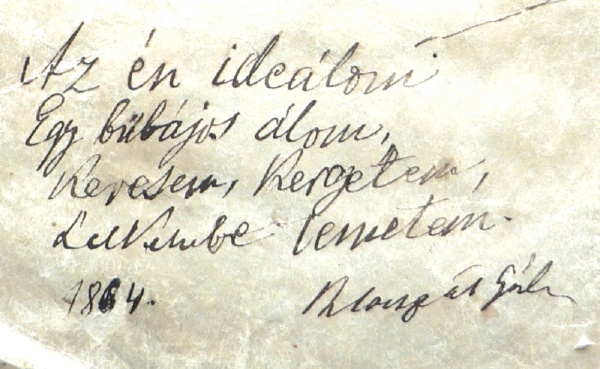 Az én ideálom
Egy bűbájos álom,
Keresem, Kergetem,
Lelkembe temetem.
1864.